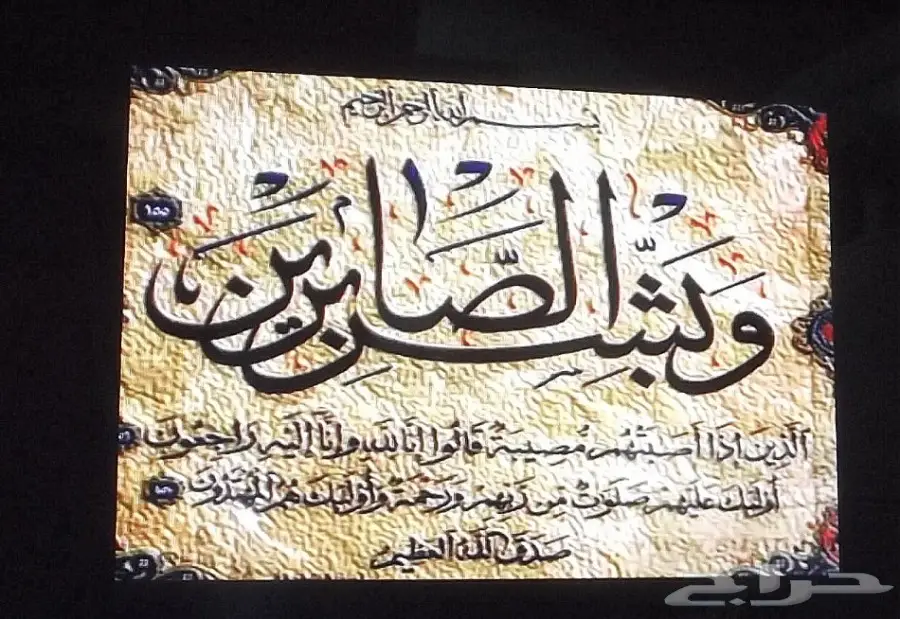 بسم الله الرحمن الرحيم
وَبَشِّرِ الصَّابِرِينَ ١٥٥
الَّذِينَ إِذَا أَصَابَتْهُمْ مُصِيبَةٌ قَالُوا إِنَّا لِلَّهِ وَإِنَّا إِلَيْهِ رَاجِعُونَ
أُولَئِكَ عَلَيْهِمْ صَلَوَاتٌ مِنْ رَبِّهِمْ وَرَحْمَةٌ وَأُولَئِكَ هُمُ الْمُهْتَدُونَ
صدق الله العظيم
حراج